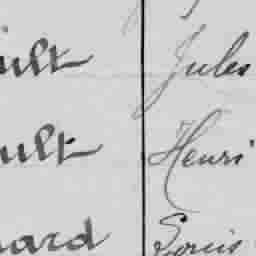 ult Jules
ult Henri
nard Louis